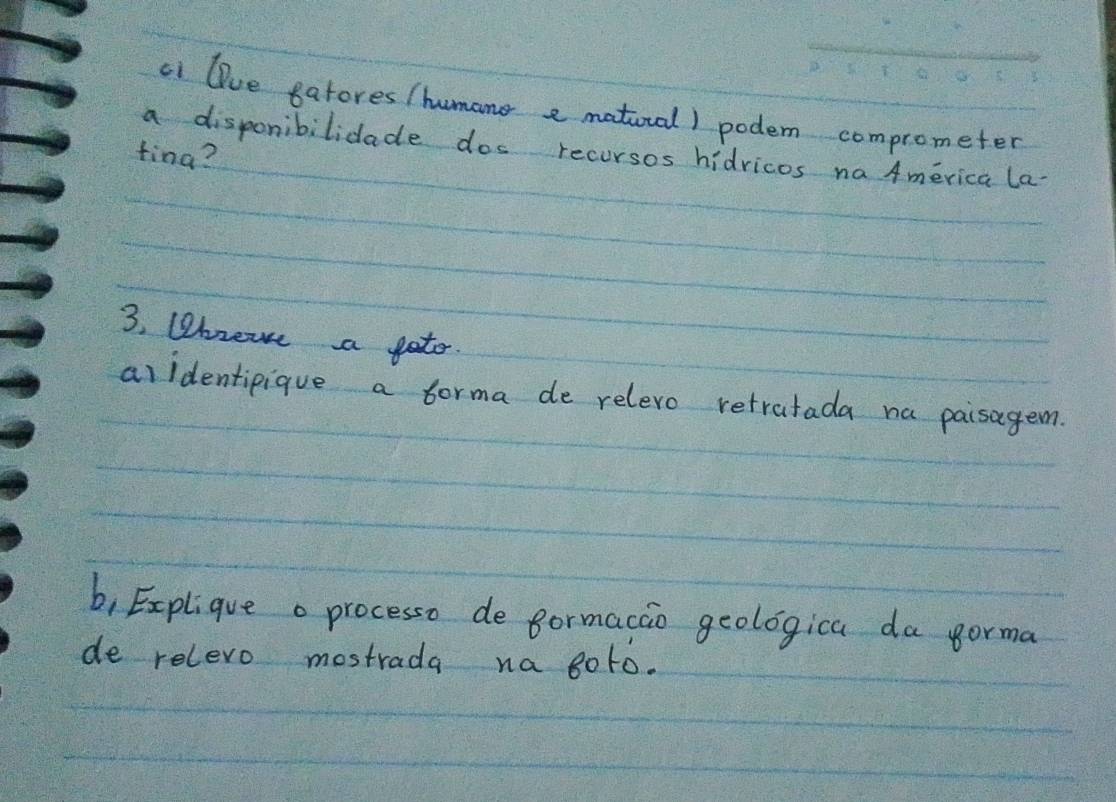 D S T Q Q S S
c) Que fatores (humano e natural) podem comprometer
a disponibilidade dos recursos hídricos na América La-
tina?
3. Observe a foto.
a) Identifique a forma de relevo retratada na paisagem.
b) Explique o processo de formação geológica da forma
de relevo mostrada na foto.